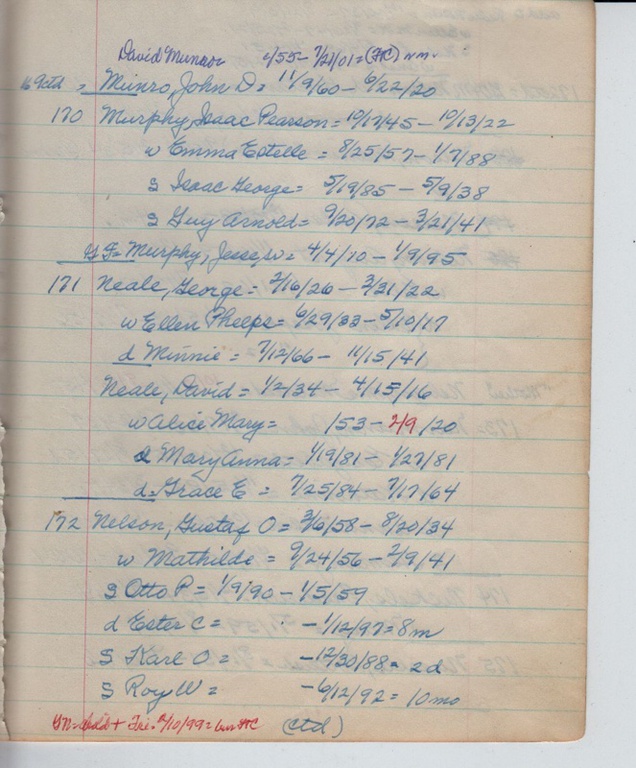 David Munror /55 - 7/21/01 = (HC) nm.
= Munro, John D = 11/9/60 - 6/22/20
170 Murphy, Isaac Pearson = 10/17/45 - 10/13/22
w Emma Estelle = 8/25/57 - 1/7/88
s Isaac George = 5/19/85 - 5/9/38
s Guy Arnold = 9/20/72 - 3/21/41
Murphy, Jesse, w = 4/4/10 - 1/9/95
171 Neale, George = 2/16/26 - 3/31/22
w Ellen Phelps = 6/29/33 - 5/10/17
d Minnie = 7/12/66 - 11/15/41
Neale, David = 1/2/34 - 4/15/16
w Alice Mary = /53 - 2/9/20
d Mary Anna = 1/19/81 - 1/27/81
d = Grace E = 7/25/84 - 7/17/64
172 Nelson, Gustaf O = 3/6/58 - 8/20/34
w Mathilde = 9/24/56 - 2/9/41
s Otto P = 1/9/90 - 1/5/59
d Ester C = - 1/12/97 = 8m
s Karl O = - 12/30/88 = 2d
s Roy W = - 6/12/92 = 10 mo
(ctd)